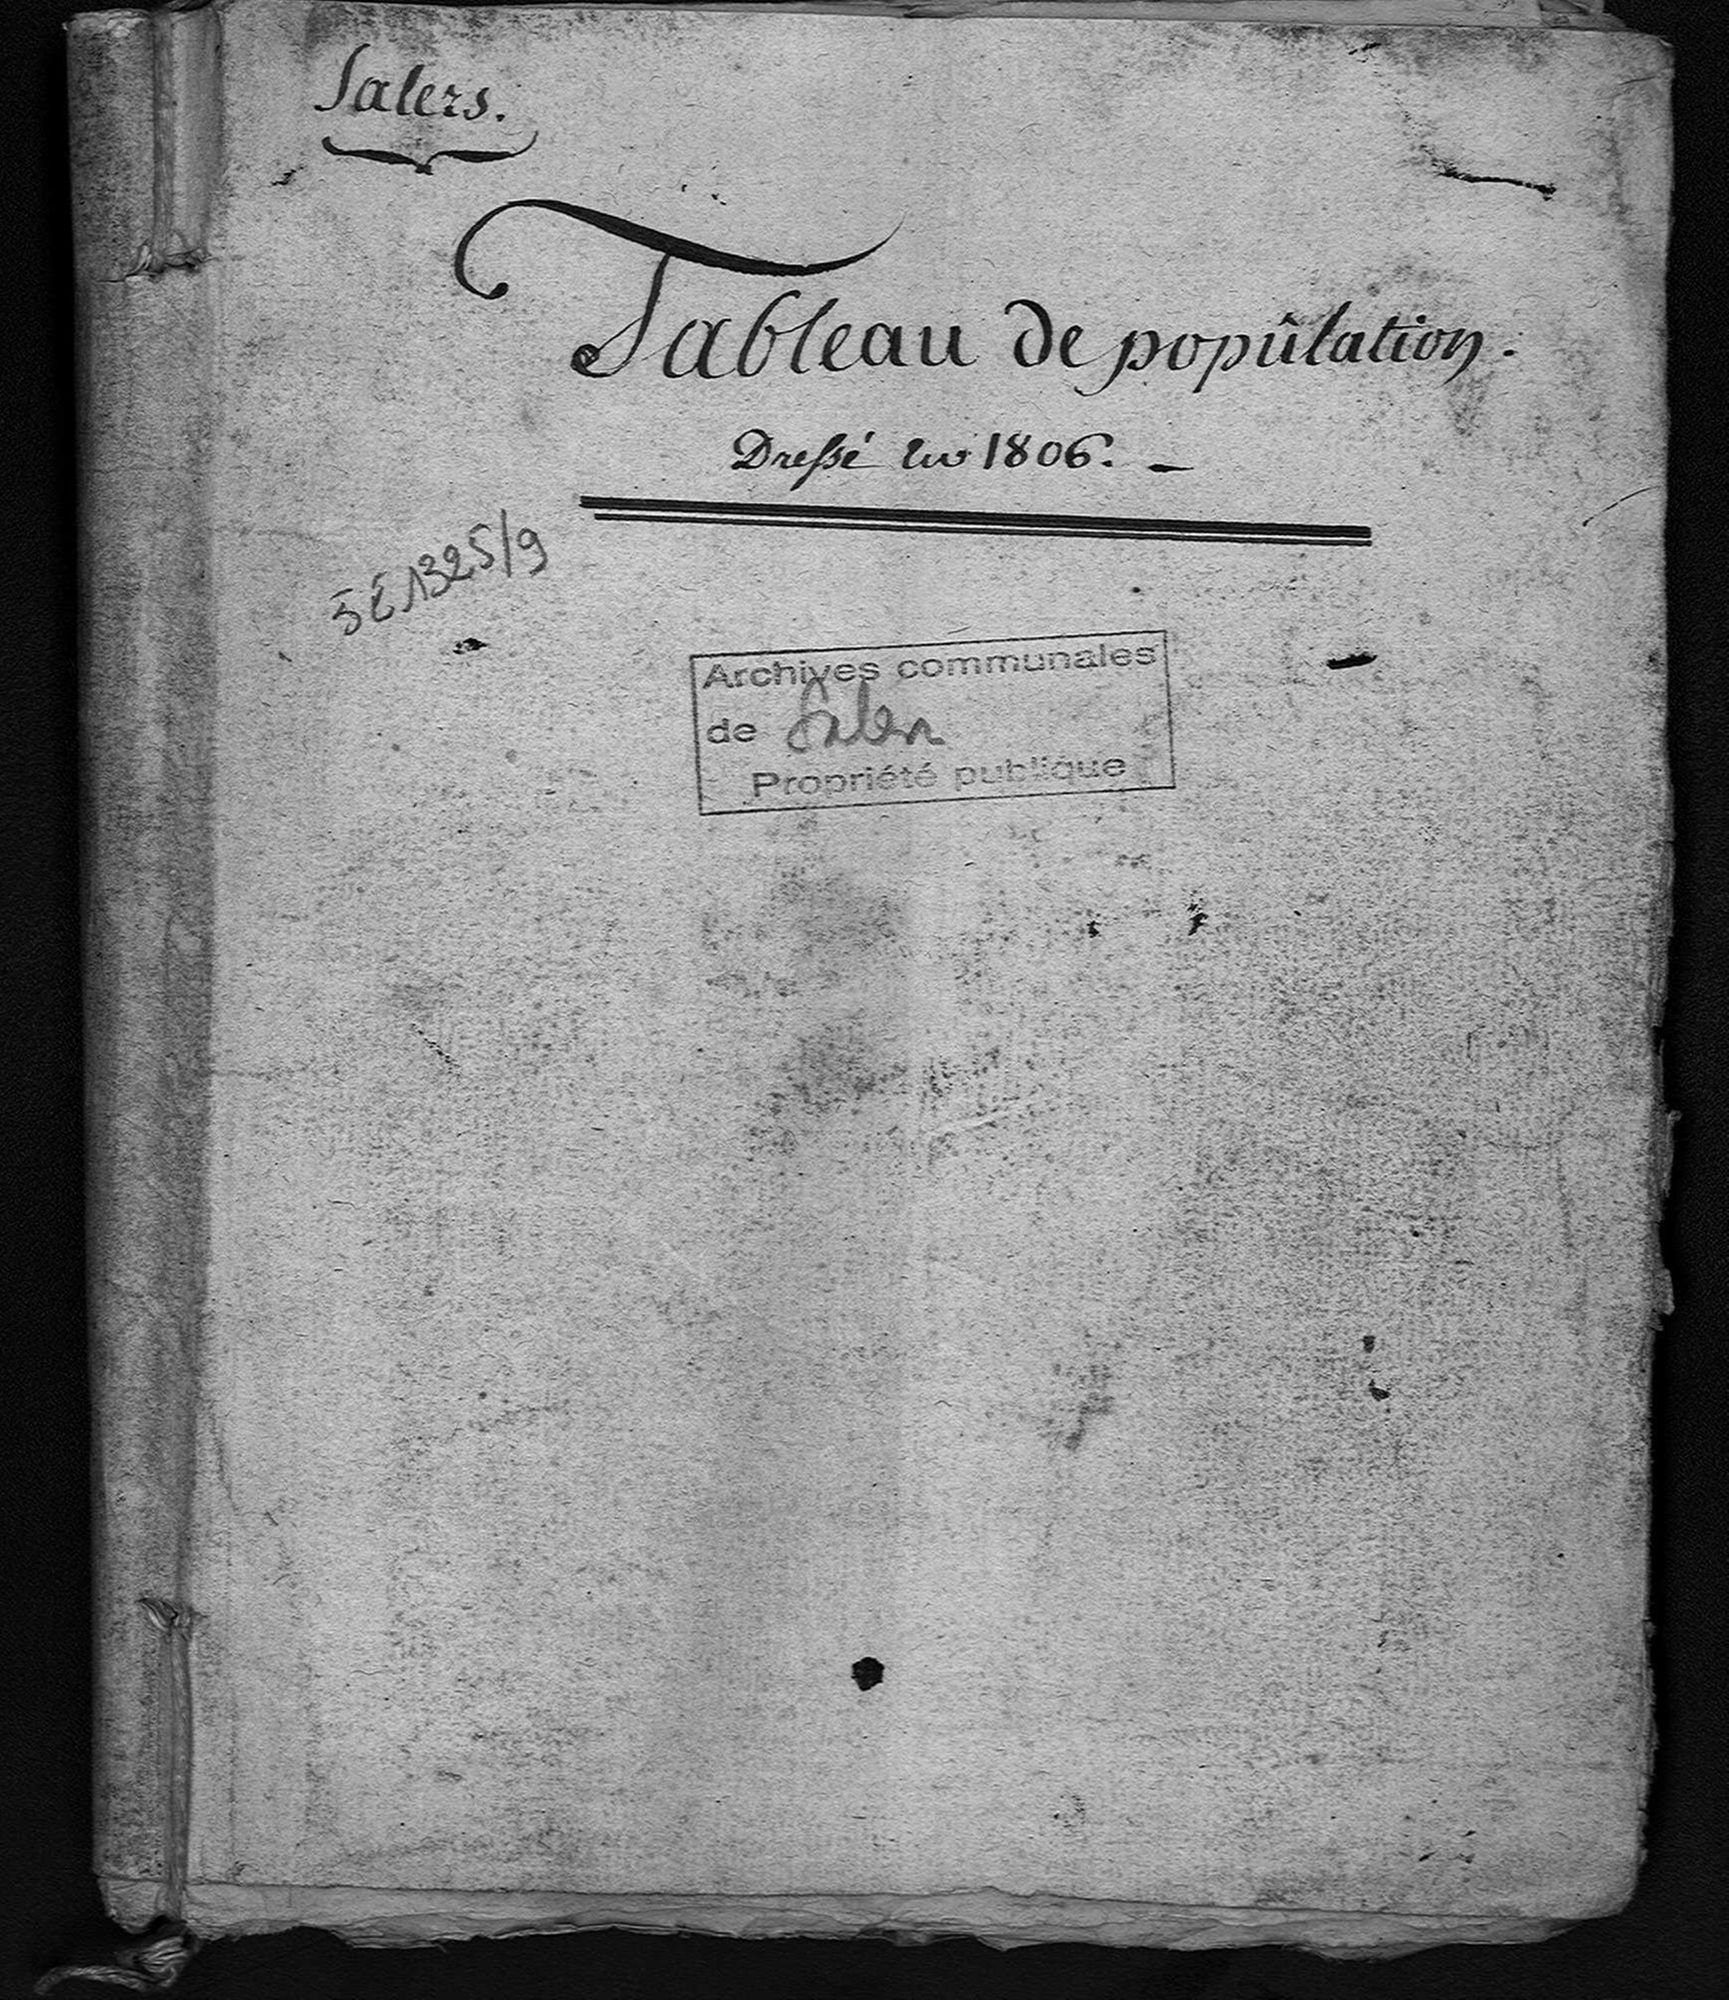 Salers.
Tableau de popûlation.
Dressé en 1806. —
5 E 1325/9
Archives communales
de Salers
Propriété publique